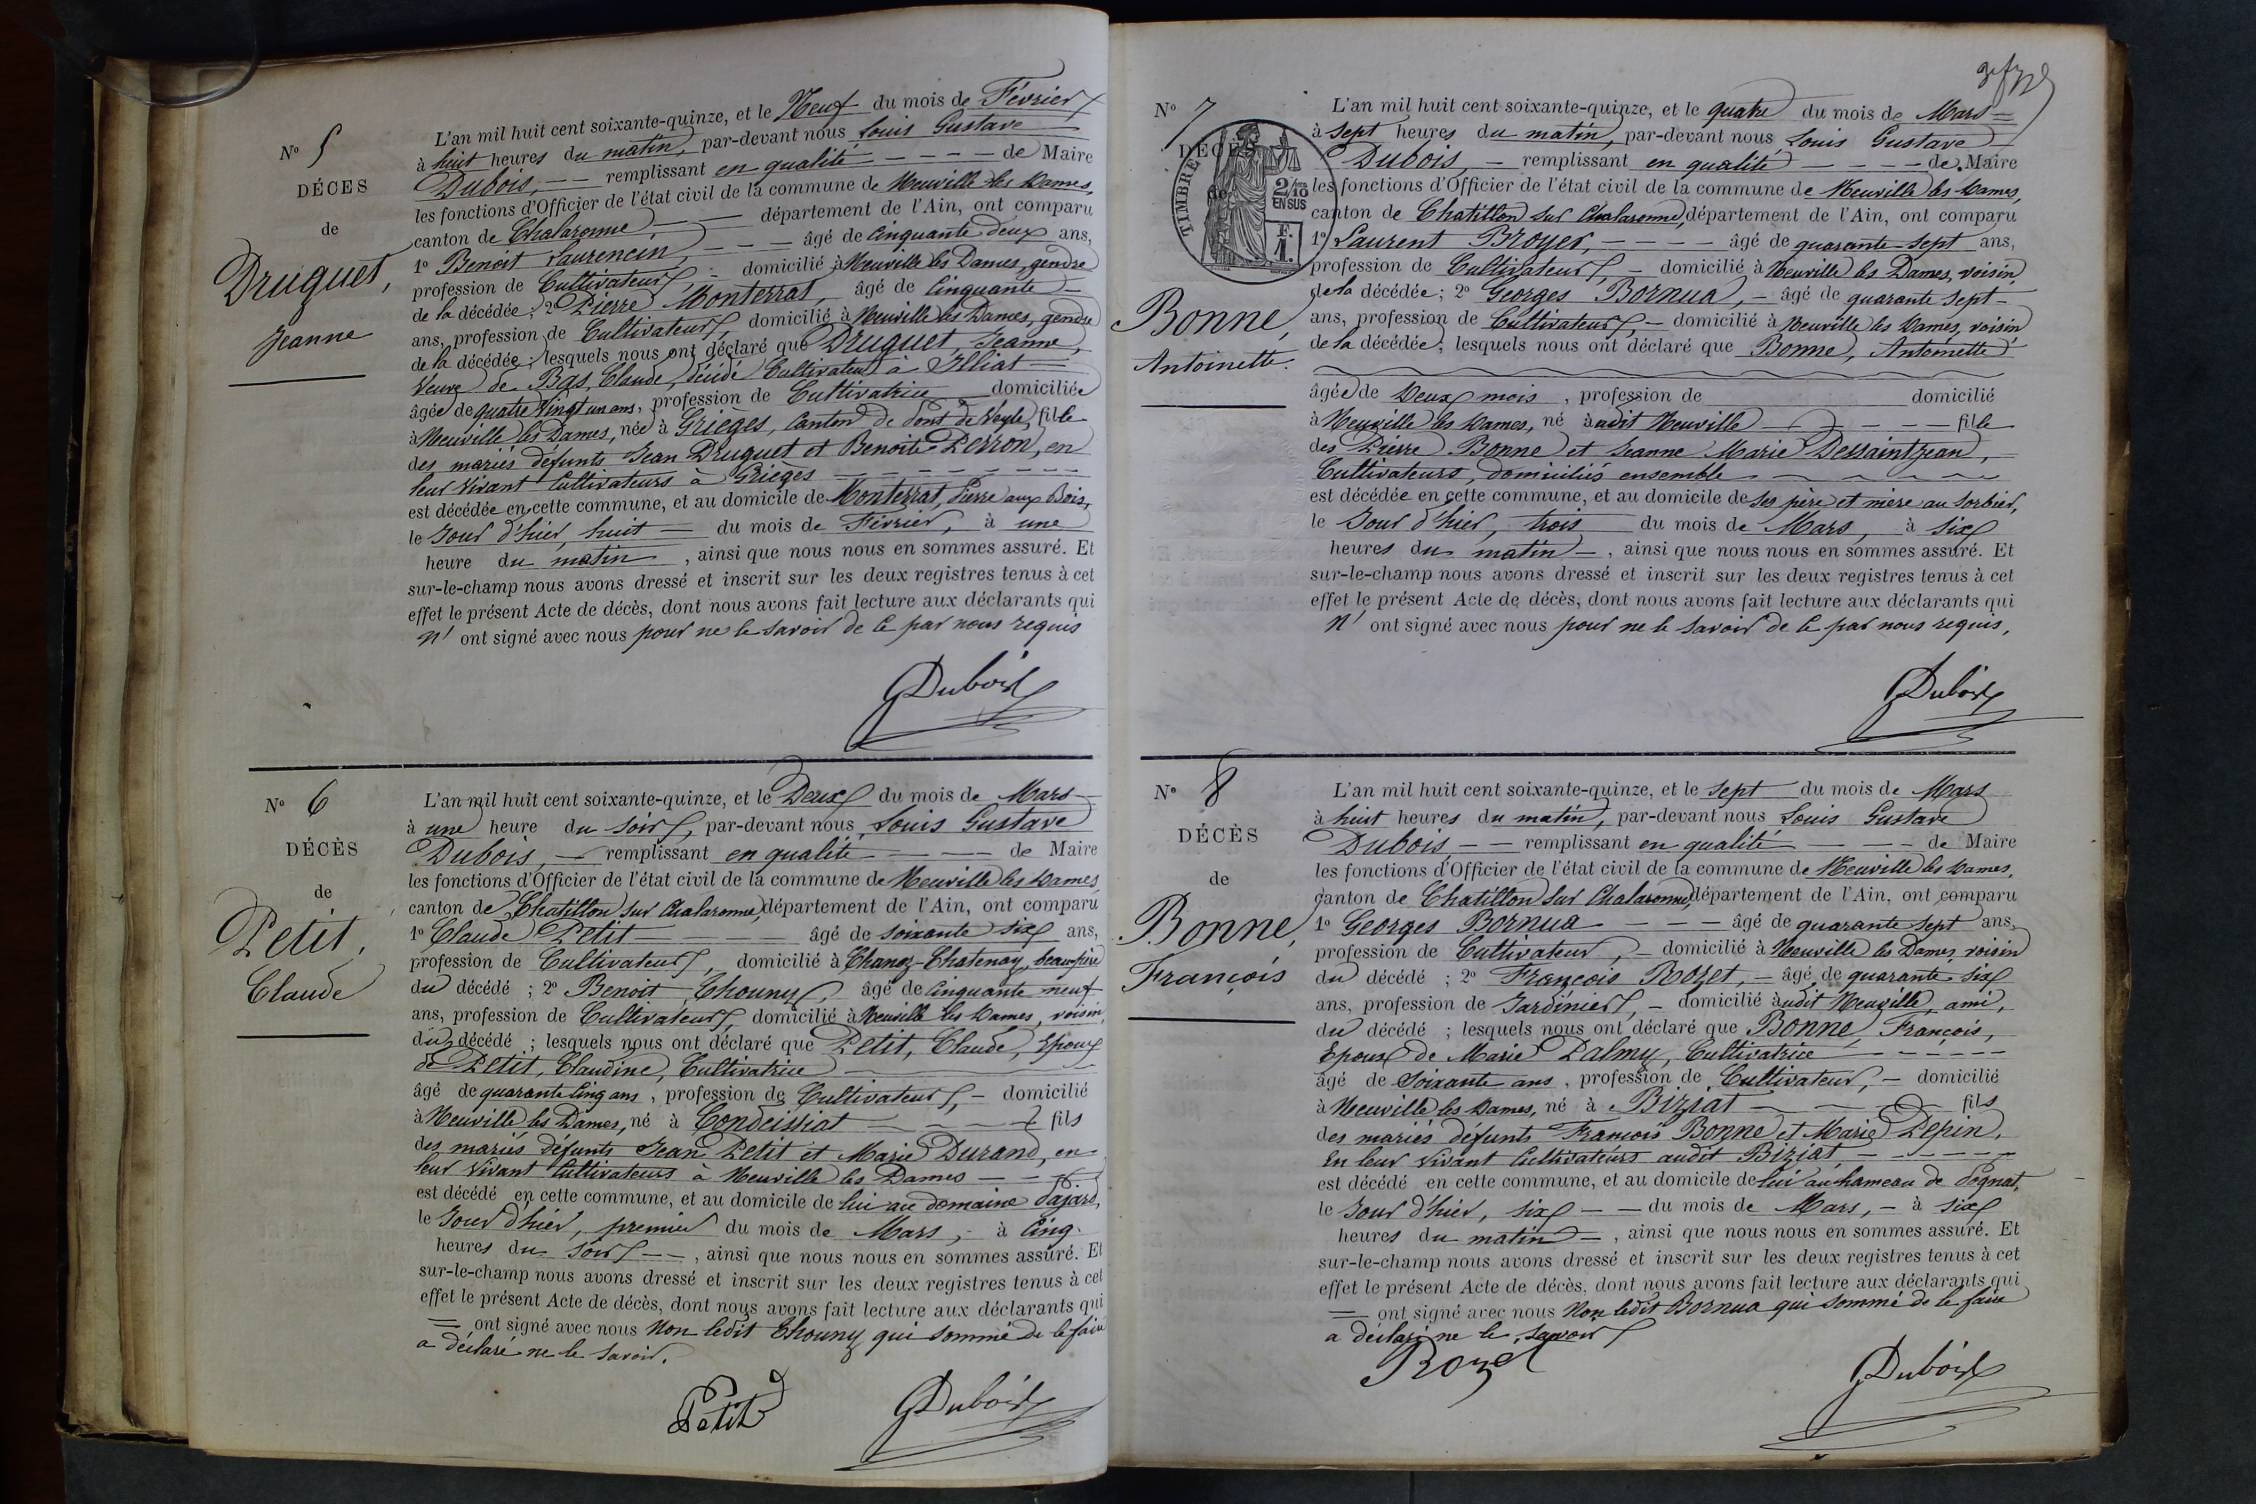 N° 5
DÉCES
de
Druguet,
Jeanne
L'an mil huit cent soixante-quinze, et le Neuf du mois de Février
à huit heures du matin, par-devant nous Louis Gustave
Dubois, remplissant en qualité de Maire
les fonctions d'Officier de l'état civil de la commune de Neuville les Dames,
canton de Chalaronne, département de l'Ain, ont comparu
1° Benoit Laurencin, âgé de Cinquante deux ans,
profession de Cultivateur, domicilié à Neuville les Dames, gendre
de la décédée ; 2° Pierre Monterrat, âgé de Cinquante
ans, profession de Cultivateur, domicilié à Neuville les Dames, gendre
de la décédée ; lesquels nous ont déclaré que Druguet, Jeanne,
Veuve de Bas, Claude, décédé Cultivateur à Illiat
âgée de quatre Vingt un ans, profession de Cultivatrice domiciliée
à Neuville les Dames, née à Grièges, Canton de Pont de Veyle, fille
des mariés défunts Jean Druguet et Benoite Perron, en
leur Vivant Cultivateurs à Grièges
est décédée en cette commune, et au domicile de Monterrat, Pierre aux Bois,
le Jour d'hier, huit du mois de Février, à une
heure du matin, ainsi que nous nous en sommes assuré. Et
sur-le-champ nous avons dressé et inscrit sur les deux registres tenus à cet
effet le présent Acte de décès, dont nous avons fait lecture aux déclarants qui
n' ont signé avec nous pour ne le savoir de ce par nous requis
GDubois
N° 6
DÉCÈS
de
Petit,
Claude
L'an mil huit cent soixante-quinze, et le Deux du mois de Mars
à une heure du soir, par-devant nous Louis Gustave
Dubois, remplissant en qualité de Maire
les fonctions d'Officier de l'état civil de la commune de Neuville les Dames,
canton de Chatillon sur Chalaronne, département de l'Ain, ont comparu
1° Claude Petit âgé de soixante six ans,
profession de Cultivateur, domicilié à Chanoz-Chatenay, beau-père
du décédé ; 2° Benoit Chouny, âgé de Cinquante neuf
ans, profession de Cultivateur, domicilié à Neuville les Dames, voisin
du décédé ; lesquels nous ont déclaré que Petit, Claude, Epoux
de Petit, Claudine, Cultivatrice
âgé de quarante Cinq ans, profession de Cultivateur, domicilié
à Neuville les Dames, né à Condeissiat fils
des mariés défunts Jean Petit et Marie Durand, en
leur Vivant Cultivateurs à Neuville les Dames
est décédé en cette commune, et au domicile de lui au domaine
le Jour d'hier, premier du mois de Mars, à Cinq
heures du soir, ainsi que nous nous en sommes assuré. Et
sur-le-champ nous avons dressé et inscrit sur les deux registres tenus à cet
effet le présent Acte de décès, dont nous avons fait lecture aux déclarants qui
ont signé avec nous Non ledit Chouny qui sommé de le faire
a déclaré ne le savoir.
Petit
GDubois
N° 7
DÉCÈS
de
TIMBRE
2/10 EN SUS
F. 1.
Bonne,
Antoinette.
L'an mil huit cent soixante-quinze, et le quatre du mois de Mars
à sept heures du matin, par-devant nous Louis Gustave
Dubois, remplissant en qualité de Maire
les fonctions d'Officier de l'état civil de la commune de Neuville les Dames,
canton de Chatillon sur Chalaronne, département de l'Ain, ont comparu
1° Laurent Broyer, âgé de quarante-sept ans,
profession de Cultivateur, domicilié à Neuville les Dames, voisin
de la décédée ; 2° Georges Bornua, âgé de quarante sept
ans, profession de Cultivateur, domicilié à Neuville les Dames, voisin
de la décédée ; lesquels nous ont déclaré que Bonne, Antoinette
âgée de Deux mois, profession de domicilié
à Neuville les Dames, né audit Neuville fille
des Pierre Bonne et Jeanne Marie Dessaintjean,
Cultivateurs, domiciliés ensemble
est décédée en cette commune, et au domicile de ses père et mère au Sorbier,
le Jour d'hier, trois du mois de Mars, à six
heures du matin, ainsi que nous nous en sommes assuré. Et
sur-le-champ nous avons dressé et inscrit sur les deux registres tenus à cet
effet le présent Acte de décès, dont nous avons fait lecture aux déclarants qui
n' ont signé avec nous pour ne le savoir de ce par nous requis,
GDubois
N° 8
DÉCÈS
de
Bonne,
François
L'an mil huit cent soixante-quinze, et le sept du mois de Mars
à huit heures du matin, par-devant nous Louis Gustave
Dubois, remplissant en qualité de Maire
les fonctions d'Officier de l'état civil de la commune de Neuville les Dames,
canton de Chatillon sur Chalaronne, département de l'Ain, ont comparu
1° Georges Bornua âgé de quarante sept ans,
profession de Cultivateur, domicilié à Neuville les Dames, voisin
du décédé ; 2° François Rozet, âgé de quarante six
ans, profession de Jardinier, domicilié audit Neuville, ami,
du décédé ; lesquels nous ont déclaré que Bonne, François,
Epoux de Marie Palmy, Cultivatrice
âgé de Soixante ans, profession de Cultivateur, domicilié
à Neuville les Dames, né à Biziat fils
des mariés défunts François Bonne et Marie Pepin,
En leur Vivant Cultivateurs audit Biziat,
est décédé en cette commune, et au domicile de lui au hameau de Pognat,
le Jour d'hier, six du mois de Mars, à six
heures du matin, ainsi que nous nous en sommes assuré. Et
sur-le-champ nous avons dressé et inscrit sur les deux registres tenus à cet
effet le présent Acte de décès, dont nous avons fait lecture aux déclarants qui
ont signé avec nous Non ledit Bornua qui sommé de le faire
a déclaré ne le savoir
Rozet
GDubois